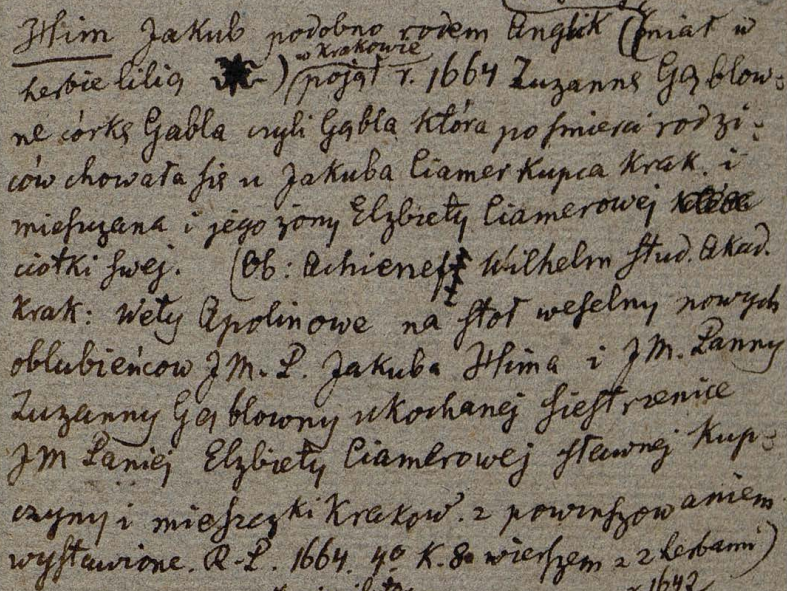 Him Jakub podobno rodem Anglik (miał w
herbie lilią) w Krakowie pojął r. 1664 Zuzannę Gąblow-
nę córkę Gabla czyli Gąbla która po śmierci rodzi-
ców chowała się u Jakuba Ciamer Kupca Krak. i
mieszczana i jego żony Elzbiety Ciamerowej
ciotki swej. (Ob: Wilhelm stud. Akad.
Krak: Wety Apolinowe na stoł weselny nowych
oblubieńcow JM. P. Jakuba Hima i JM. Panny
Zuzanny Gąblowny ukochanej siestrzenice
JM Paniej Elzbiety Ciamerowej sławnej Kup-
czyny i mieszczki Krakow. z powinszowaniem
wystawione. R-P. 1664. 4o K. 8. wierszem z 2 herbami)
1642